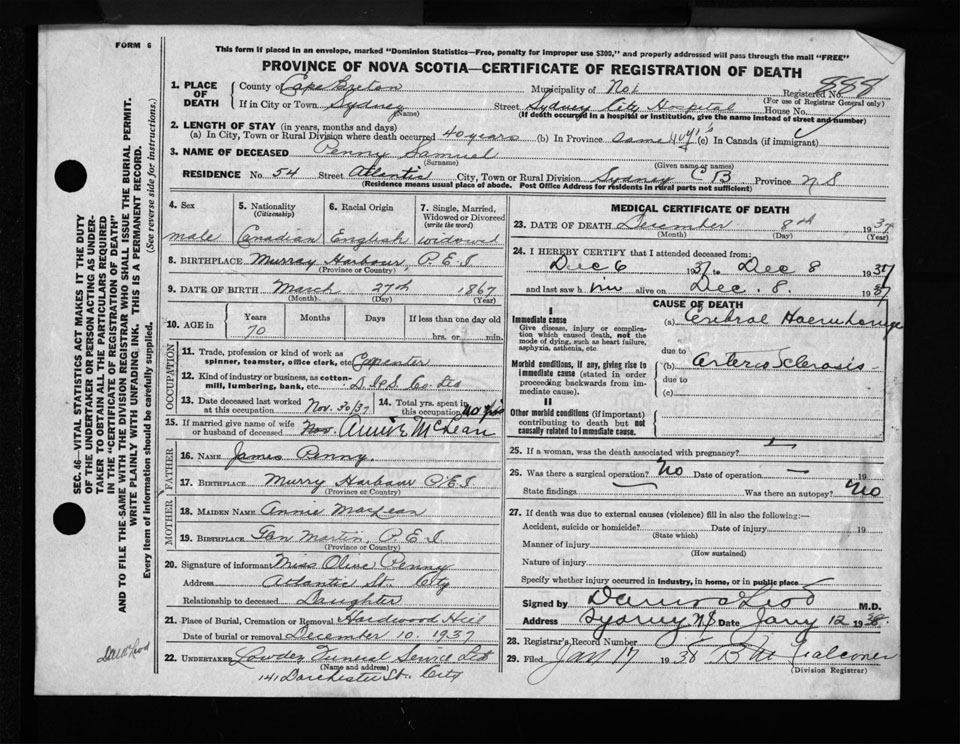 FORM 6
This form if placed in an envelope, marked "Dominion Statistics—Free, penalty for improper use $300," and properly addressed will pass through the mail "FREE"
PROVINCE OF NOVA SCOTIA—CERTIFICATE OF REGISTRATION OF DEATH
1. PLACE OF DEATH County of Cape Breton Municipality of No 1 Registered No. 888
(For use of Registrar General only)
If in City or Town Sydney Street Sydney City Hospital House No.
(Name) (If death occurred in a hospital or institution, give the name instead of street and number)
2. LENGTH OF STAY (in years, months and days)
(a) In City, Town or Rural Division where death occurred 40 years (b) In Province same (c) In Canada (if immigrant)
3. NAME OF DECEASED Penny Samuel
(Surname) (Given name or names)
RESIDENCE No. 54 Street Atlantic City, Town or Rural Division Sydney CB Province NS
(Residence means usual place of abode. Post Office Address for residents in rural parts not sufficient)
4. Sex 5. Nationality (Citizenship) 6. Racial Origin 7. Single, Married, Widowed or Divorced (write the word)
male Canadian English widowed
8. BIRTHPLACE Murray Harbour, P.E.I
(Province or Country)
9. DATE OF BIRTH March 27th 1867
(Month) (Day) (Year)
10. AGE in Years Months Days If less than one day old
70 hrs. or min.
OCCUPATION
11. Trade, profession or kind of work as spinner, teamster, office clerk, etc. Carpenter
12. Kind of industry or business, as cotton-mill, lumbering, bank, etc. D I & S Co Ltd
13. Date deceased last worked at this occupation Nov. 30/37 14. Total yrs. spent in this occupation 40 yrs
15. If married give name of wife or husband of deceased Annie McLean
FATHER
16. NAME James Penny.
17. BIRTHPLACE Murry Harbour P.E.I
(Province or Country)
MOTHER
18. MAIDEN NAME Annie MacLean
19. BIRTHPLACE Martin, P.E.I
(Province or Country)
20. Signature of informant Miss Olive Penny
Address Atlantic St. City
Relationship to deceased Daughter
21. Place of Burial, Cremation or Removal Hardwood Hill
Date of burial or removal December 10, 1937
22. UNDERTAKER Lowden Funeral Service Ltd
(Name and address)
141 Dorchester St. City
MEDICAL CERTIFICATE OF DEATH
23. DATE OF DEATH December 8th 1937
(Month) (Day) (Year)
24. I HEREBY CERTIFY that I attended deceased from:
Dec 6 1937 to Dec 8 1937
and last saw him alive on Dec. 8. 1937
CAUSE OF DEATH
I
Immediate cause (a) Cerebral Haemorrhage
Give disease, injury or complication which caused death, not the mode of dying, such as heart failure, asphyxia, asthenia, etc.
due to
Morbid conditions, if any, giving rise to immediate cause (stated in order proceeding backwards from immediate cause).
(b) Arterio Sclerosis
due to
(c)
II
Other morbid conditions (if important) contributing to death but not causally related to immediate cause.
25. If a woman, was the death associated with pregnancy?
26. Was there a surgical operation? No Date of operation — 19
State findings — Was there an autopsy? No
27. If death was due to external causes (violence) fill in also the following:—
Accident, suicide or homicide? Date of injury 19
(State which)
Manner of injury
(How sustained)
Nature of injury
Specify whether injury occurred in industry, in home, or in public place
Signed by M.D.
Address Sydney N.S Date Jany 12 1938
28. Registrar's Record Number
29. Filed Jan 17 1938 Falconer
(Division Registrar)
SEC. 46—VITAL STATISTICS ACT MAKES IT THE DUTY
OF THE UNDERTAKER OR PERSON ACTING AS UNDER-
TAKER TO OBTAIN ALL THE PARTICULARS REQUIRED
IN THE "CERTIFICATE OF REGISTRATION OF DEATH"
AND TO FILE THE SAME WITH THE DIVISION REGISTRAR WHO SHALL ISSUE THE BURIAL PERMIT.
WRITE PLAINLY WITH UNFADING INK. THIS IS A PERMANENT RECORD.
Every item of information should be carefully supplied. (See reverse side for instructions.)